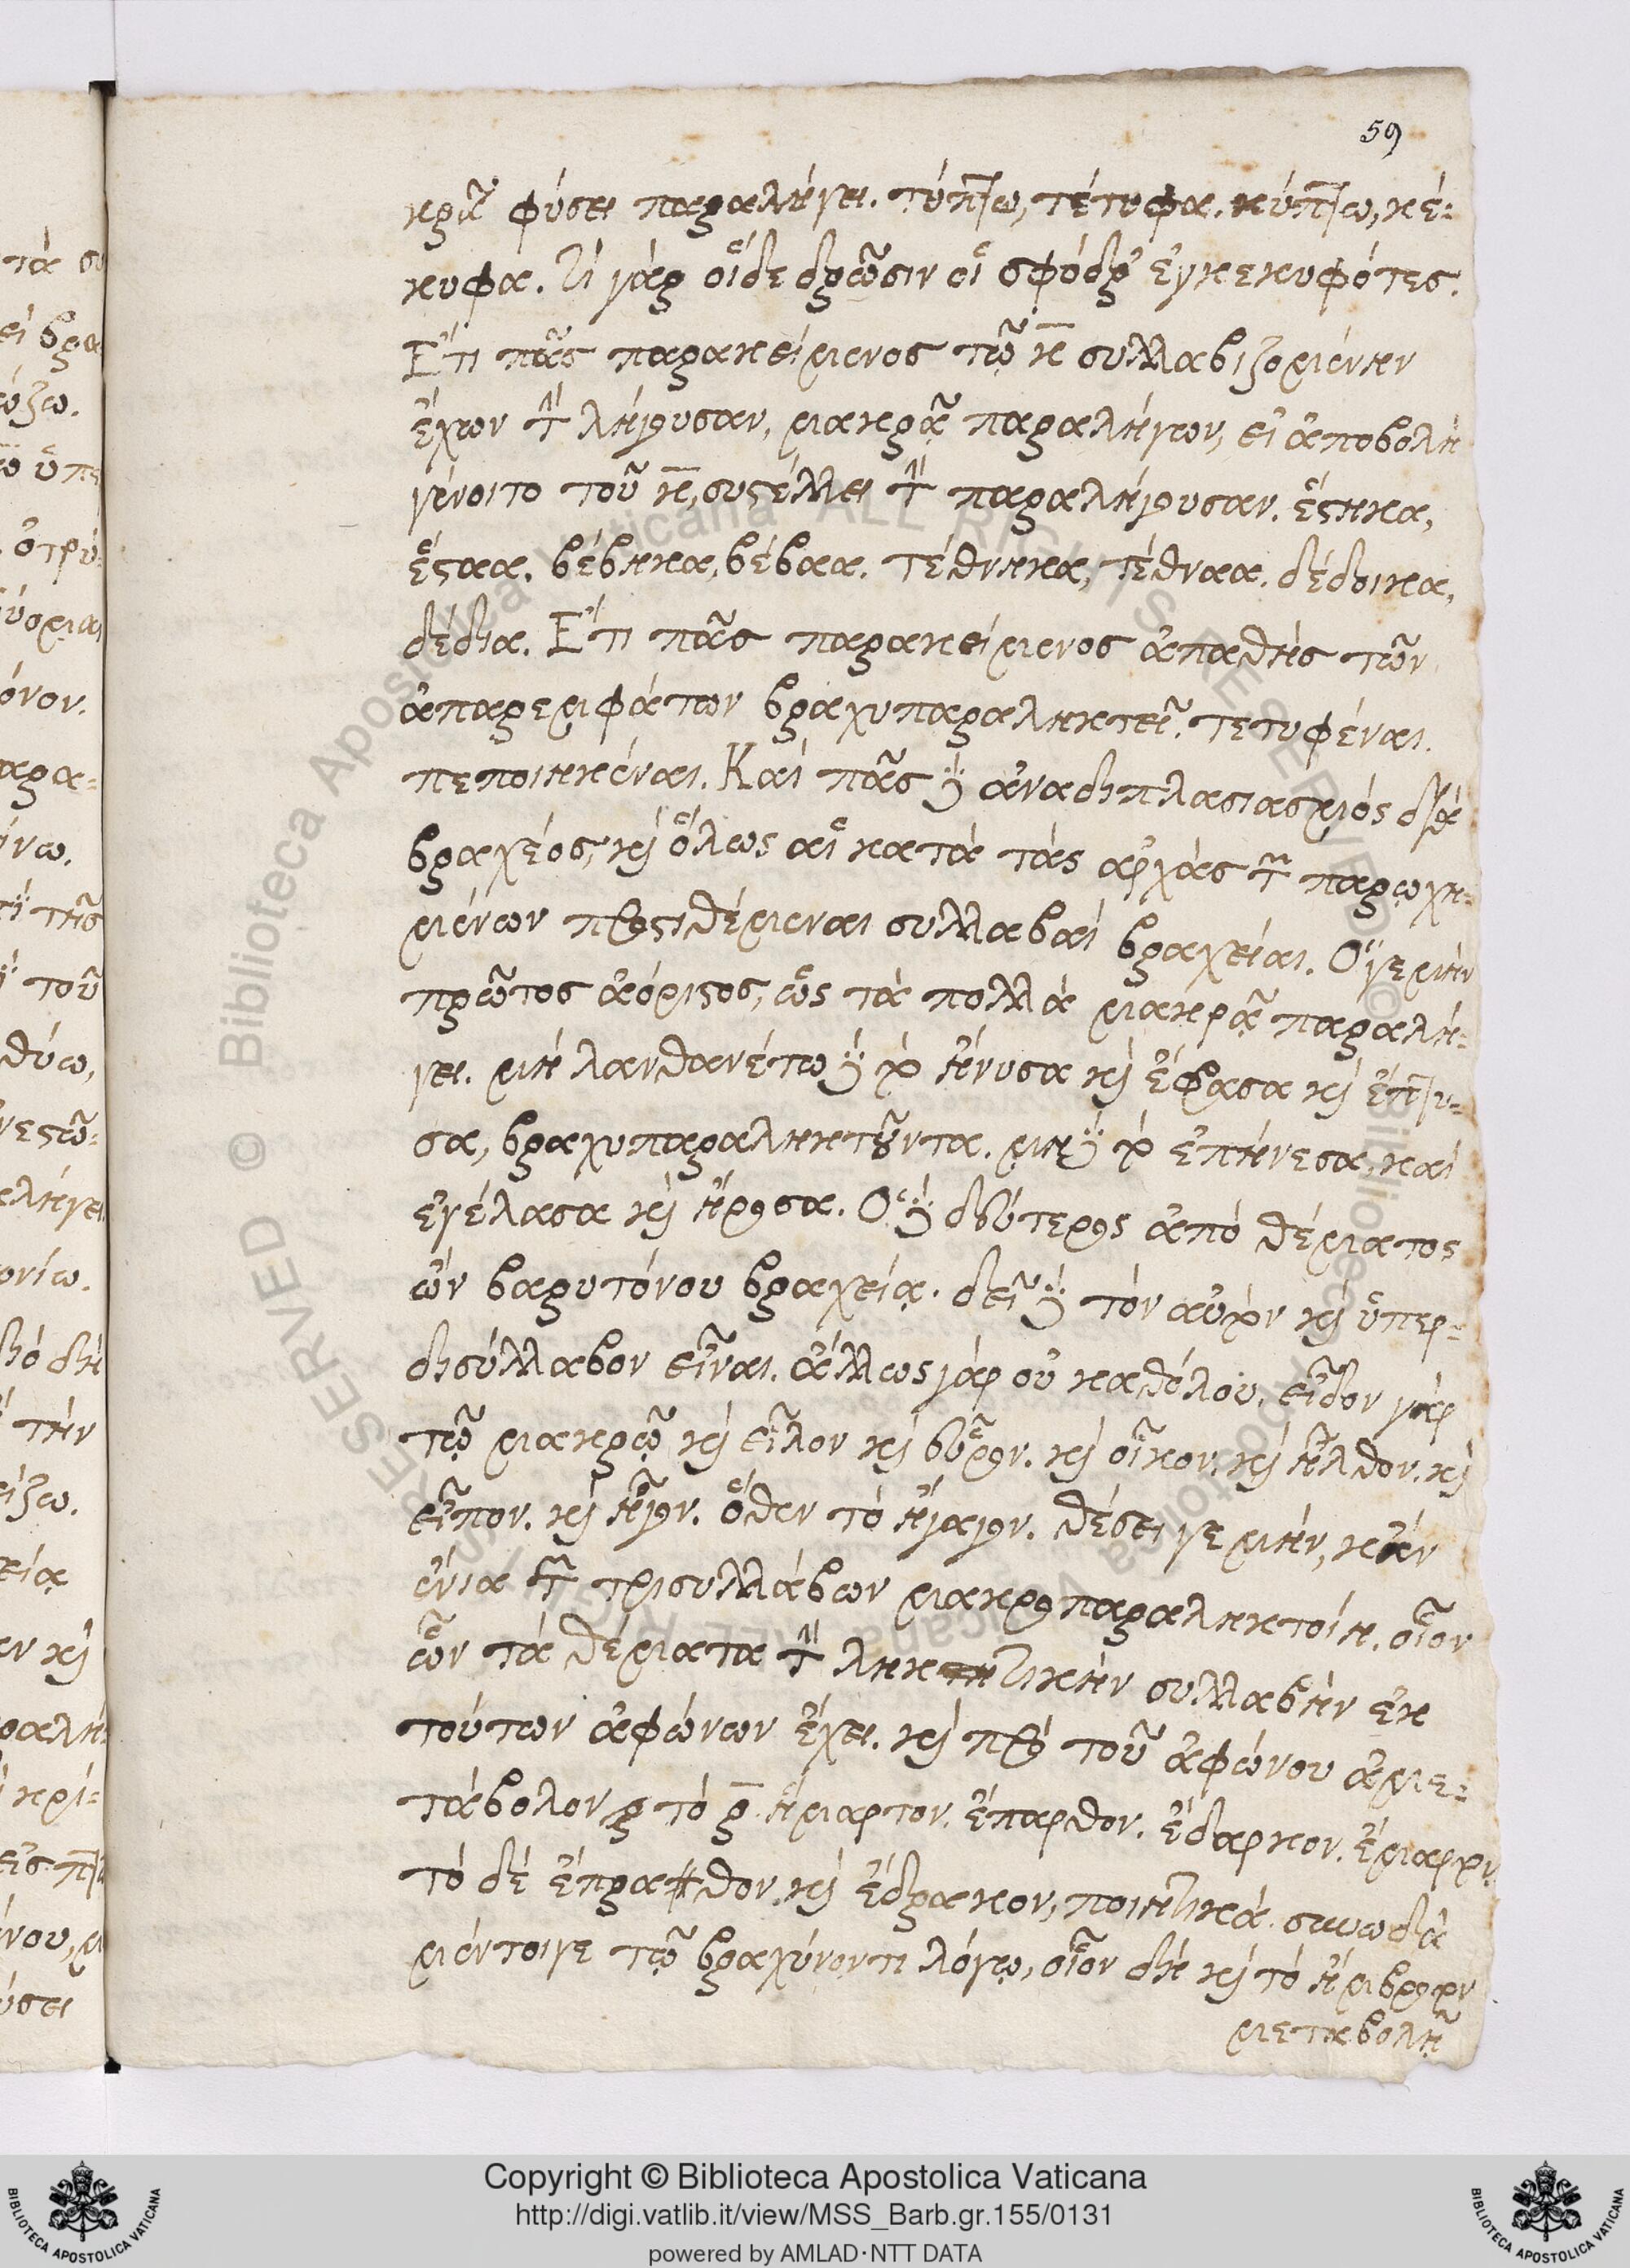 59
κρᾷ φύσει παραλήγει. τύπτω, τέτυφα. κύπτω, κέ-
κυφα. τί γάρ οἵδε δρῶσιν οἵ σφόδρ' ἐγκεκυφότες.
Ἔτι πᾶς παρακείμενος τῷ κ̅ συλλαβιζομένην
ἔχων τὴν λήγουσαν, μακρᾷ παραλήγων, εἰ ἀποβολή
γένοιτο τοῦ κ̅, συστέλλει τὴν παραλήγουσαν. ἕστηκα,
ἕσταα. βέβηκα, βέβαα. τέθνηκα, τέθναα. δέδοικα,
δέδια. Ἔτι πᾶς παρακείμενος ἀπαθής τῶν
ἀπαρεμφάτων βραχυπαραληκτεῖ. τετυφέναι.
πεποιηκέναι. Καί πᾶς δὲ ἀναδιπλασιασμός διά
βραχέος, καὶ ὅλως αἵ κατά τάς ἀρχάς τῶν παρῳχη-
μένων προςτιθέμεναι συλλαβαί βραχείαι. Ὅγε μήν
πρῶτος ἀόριστος, ὥς τά πολλά μακρᾷ παραλή-
γει. μή λανθανέτω δὲ τὸ ἤνυσα καὶ ἔφθασα καὶ ἔπτυ-
σα, βραχυπαραληκτοῦντα. μὴ δὲ τὸ ἐπήνεσα, καί
ἐγέλασα καὶ ἤροσα. Ὁ δὲ δεύτερος ἀπό θέματος
ὤν βαρυτόνου βραχείᾳ. δεῖ δὲ τόν αὐτὸν καὶ ὕπερ-
δισύλλαβον εἶναι. ἄλλως γάρ οὐ καθόλου. εἶδον γάρ
τῷ μακρῷ καὶ εἷλον καὶ εὗρον. καὶ οἶκον. καὶ ἦλθον. καὶ
εἶπον. καὶ ἦγον. ὅθεν τό ἤγαγον. θέσει γε μήν, κἄν
ἔνια τῶν τρισυλλάβων μακροπαραληκτοίη. οἷον
ὧν τά θέματα τὴν ληκτικήν συλλαβήν ἐκ
τούτων ἀφώνων ἔχει. καὶ πρό τοῦ ἀφώνου ἀμε-
τάβολον τό ρ̅. ἥμαρτον. ἔπαρθον. ἔδαρκον. ἔμαρπτον
τό δέ ἔπραθον, καὶ ἔδρακον, ποιητικά. συνωδία
μέντοιγε τῷ βραχύνοντι λόγῳ, οἷον δή καὶ τό ἤμβροτον
μεταβολῇ
Copyright © Biblioteca Apostolica Vaticana
http://digi.vatlib.it/view/MSS_Barb.gr.155/0131
powered by AMLAD·NTT DATA